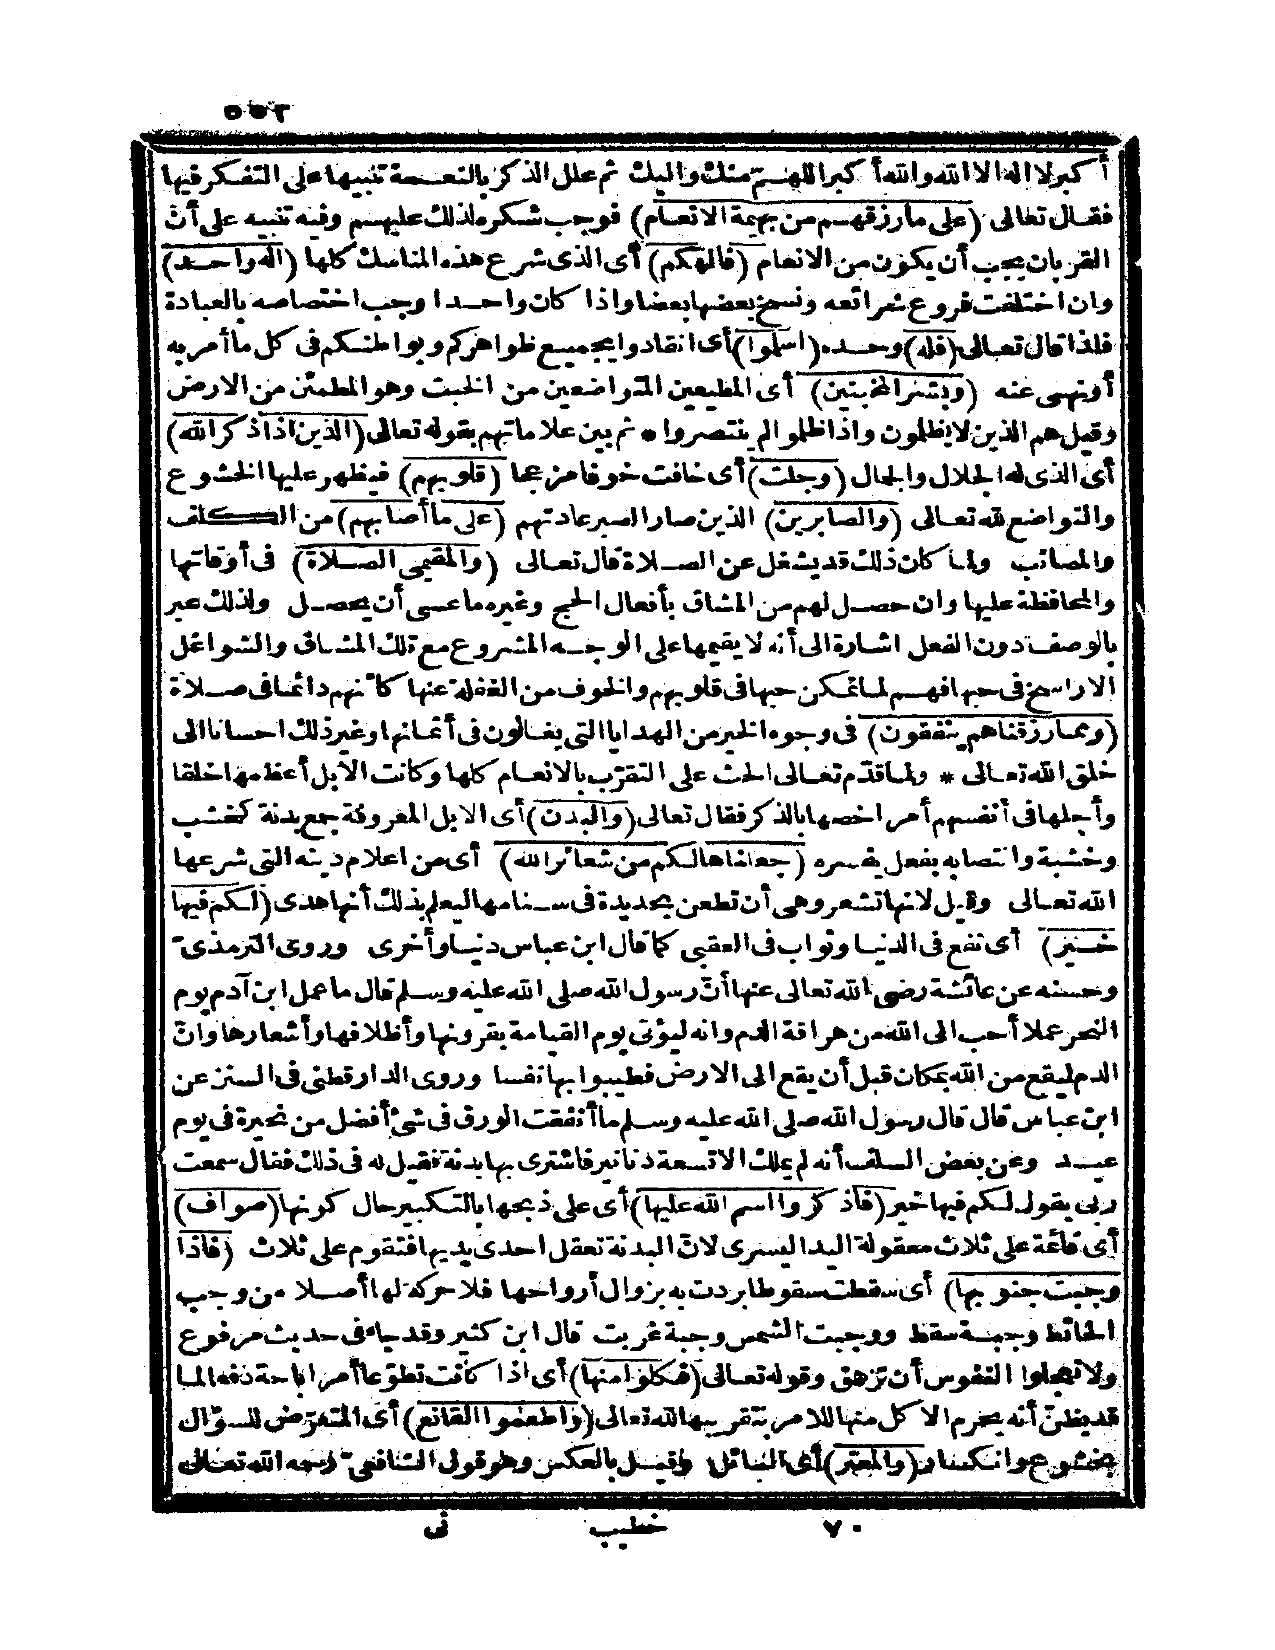 ٥٥٣
أكبر لا اله الا الله والله أكبر اللهم منك واليك ثم علل الذكر بالنعمة تنبيها على التفكر فيها
فقال تعالى (على ما رزقهم من بهيمة الانعام) فوجب شكره لذلك عليهم وفيه تنبيه على أن
القربان يجب أن يكون من الانعام (فالهكم) أى الذى شرع هذه المناسك كلها (اله واحد)
وان اختلفت فروع شرائعه ونسخ بعضها بعضا واذا كان واحدا وجب اختصاصه بالعبادة
فلذا قال تعالى (فله) وحده (اسلموا) أى انقادوا بجميع ظواهركم وبواطنكم فى كل ما أمر به
أو نهى عنه (وبشر المخبتين) أى المطيعين المتواضعين من الخبت وهو المطمئن من الارض
وقيل هم الذين لا يظلمون واذا ظلموا لم ينتصروا * ثم بين علاماتهم بقوله تعالى (الذين اذا ذكر الله)
أى الذى له الجلال والجمال (وجلت) أى خافت خوفا مزعجا (قلوبهم) فيظهر عليها الخشوع
والتواضع لله تعالى (والصابرين) الذين صار الصبر عادتهم (على ما أصابهم) من الكلف
والمصائب ولما كان ذلك قد يشغل عن الصلاة قال تعالى (والمقيمى الصلاة) فى أوقاتها
والمحافظة عليها وان حصل لهم من المشاق بأفعال الحج وغيره ما عسى أن يحصل ولذلك عبر
بالوصف دون الفعل اشارة الى أنه لا يقيمها على الوجه المشروع مع تلك المشاق والشواغل
الا راسخ فى حبها فهم لما تمكن حبها فى قلوبهم والخوف من الغفلة عنها كأنهم دائما فى صلاة
(ومما رزقناهم ينفقون) فى وجوه الخير من الهدايا التى يغالون فى أثمانها وغير ذلك احسانا الى
خلق الله تعالى * ولما قدّم تعالى الحث على التقرّب بالانعام كلها وكانت الابل أعظمها خلقا
وأجلها فى أنفسهم أمرا خصها بالذكر فقال تعالى (والبدن) أى الابل المعروفة جمع بدنة كخشب
وخشبة وانتصابه بفعل يفسره (جعلناها لكم من شعائر الله) أى من اعلام دينه التى شرعها
الله تعالى وقيل لانها تشعر وهى أن تطعن بحديدة فى سنامها ليعلم بذلك أنها هدى (لكم فيها
خير) أى نفع فى الدنيا وثواب فى العقبى كما قال ابن عباس دنيا وأخرى وروى الترمذىّ
وحسنه عن عائشة رضى الله تعالى عنها أنّ رسول الله صلى الله عليه وسلم قال ما عمل ابن آدم يوم
النحر عملا أحب الى الله من هراقة الدم وانه ليؤتى يوم القيامة بقرونها وأظلافها وأشعارها وانّ
الدم ليقع من الله بمكان قبل أن يقع الى الارض فطيبوا بها نفسا وروى الدارقطنى فى السنن عن
ابن عباس قال قال رسول الله صلى الله عليه وسلم ما أنفقت الورق فى شئ أفضل من نحيرة فى يوم
عيد وعن بعض السلف أنه لم يملك الا تسعة دنانير فاشترى بها بدنة فقيل له فى ذلك فقال سمعت
ربى يقول لكم فيها خير (فاذكروا اسم الله عليها) أى على ذبحها بالتكبير حال كونها (صواف)
أى قائمة على ثلاث معقولة اليد اليسرى لانّ البدنة تعقل احدى يديها فتقوم على ثلاث (فاذا
وجبت جنوبها) أى سقطت سقوطا بردت به بزوال أرواحها فلا حركة لها أصلا من وجب
الحائط وجبة سقط ووجبت الشمس وجبة غربت قال ابن كثير وقد جاء فى حديث مرفوع
ولا تعجلوا النفوس أن تزهق وقوله تعالى (فكلوا منها) أى اذا كانت تطوّعا أمر اباحة دفعا لما
قد يظنّ أنه يحرم الاكل منها للامر بتقريبها لله تعالى (وأطعموا القانع) أى المتعرّض للسؤال
بخشوع وانكسار (والمعتر) أى السائل وقيل بالعكس وهو قول الشافعىّ رحمه الله تعالى
٧٠ خطيب نى